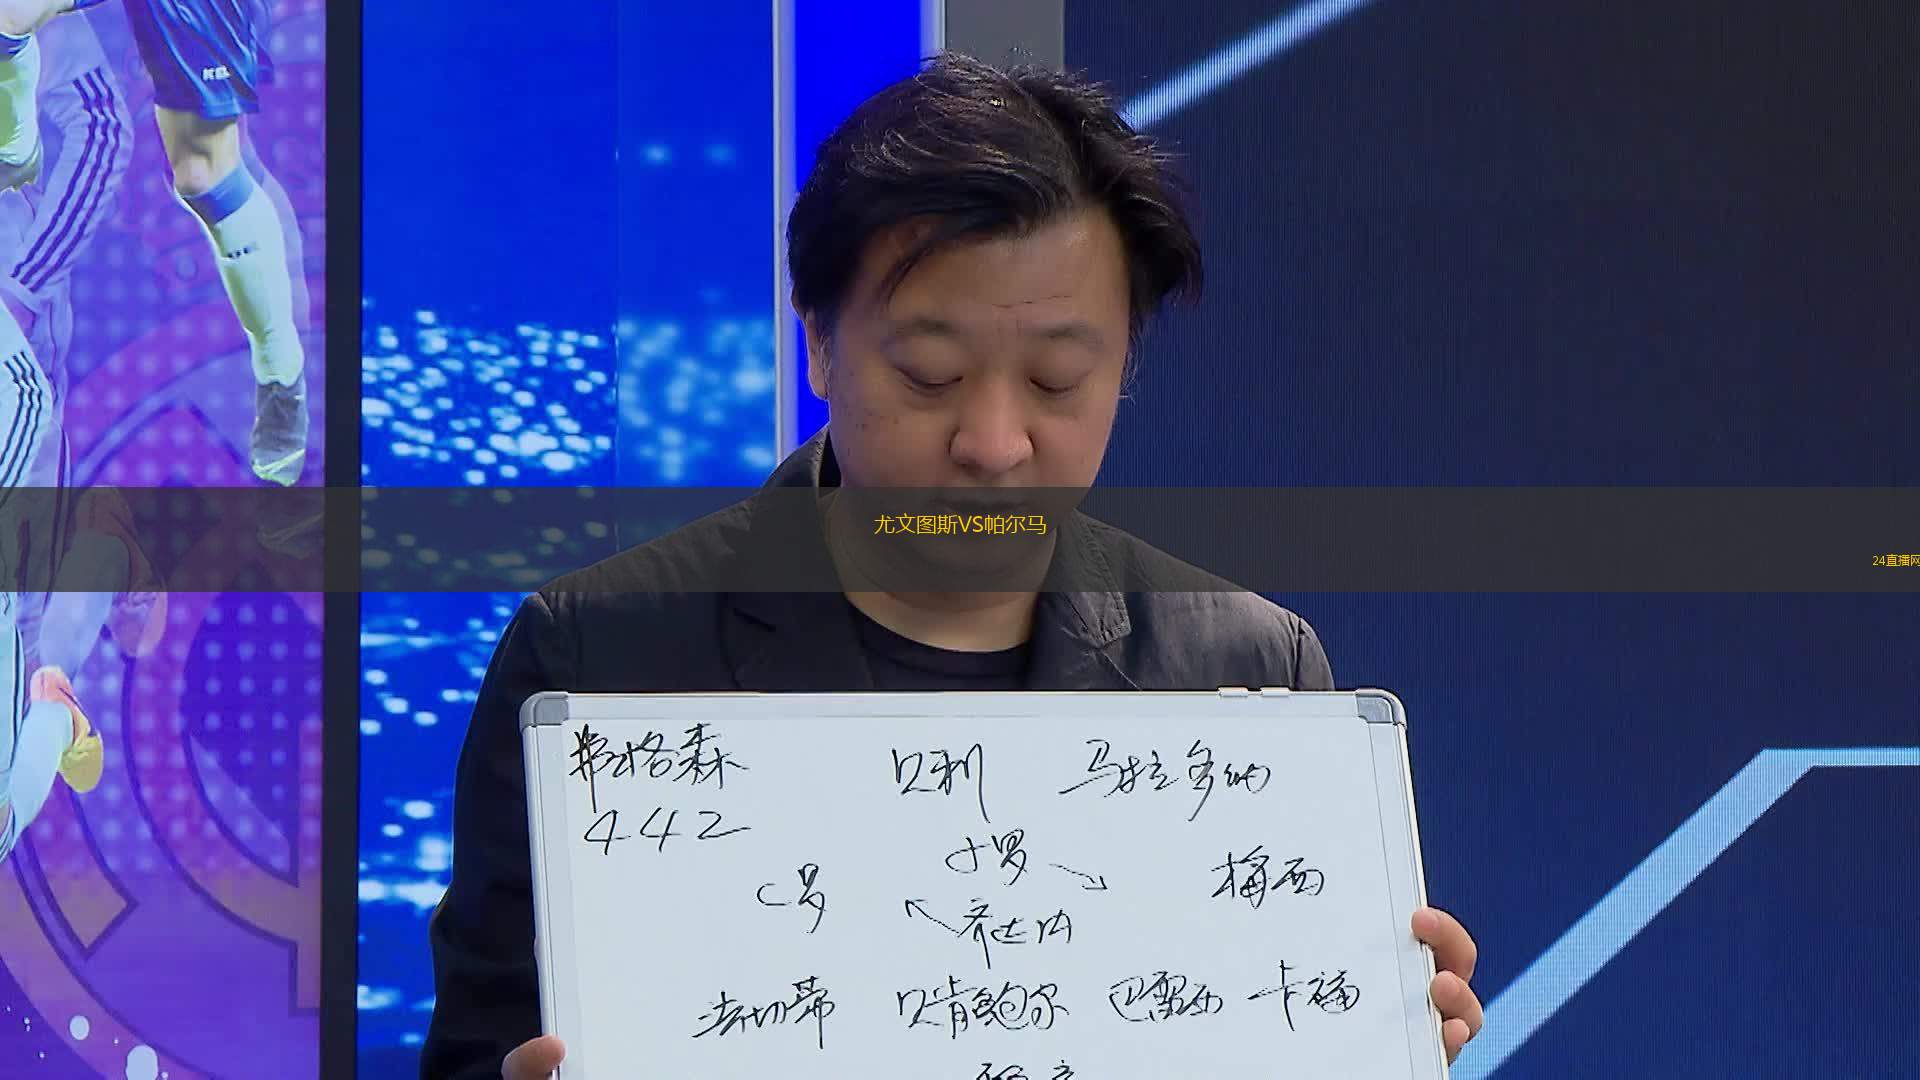 尤文图斯VS帕尔马
24直播网
弗格森 贝利 马拉多纳
442
小罗
C罗 梅西
齐达内
法切蒂 贝肯鲍尔 巴雷西 卡福